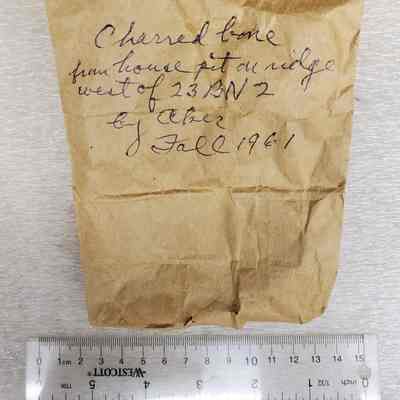 Charred bone
from house pit on ridge
west of 23BN2
by Aber
Fall 1961
0 1cm 2 3 4 5 6 7 8 9 10 11 12 13 14 15
WESTCOTT®
5 4 3 2 1 1/32 0 inch